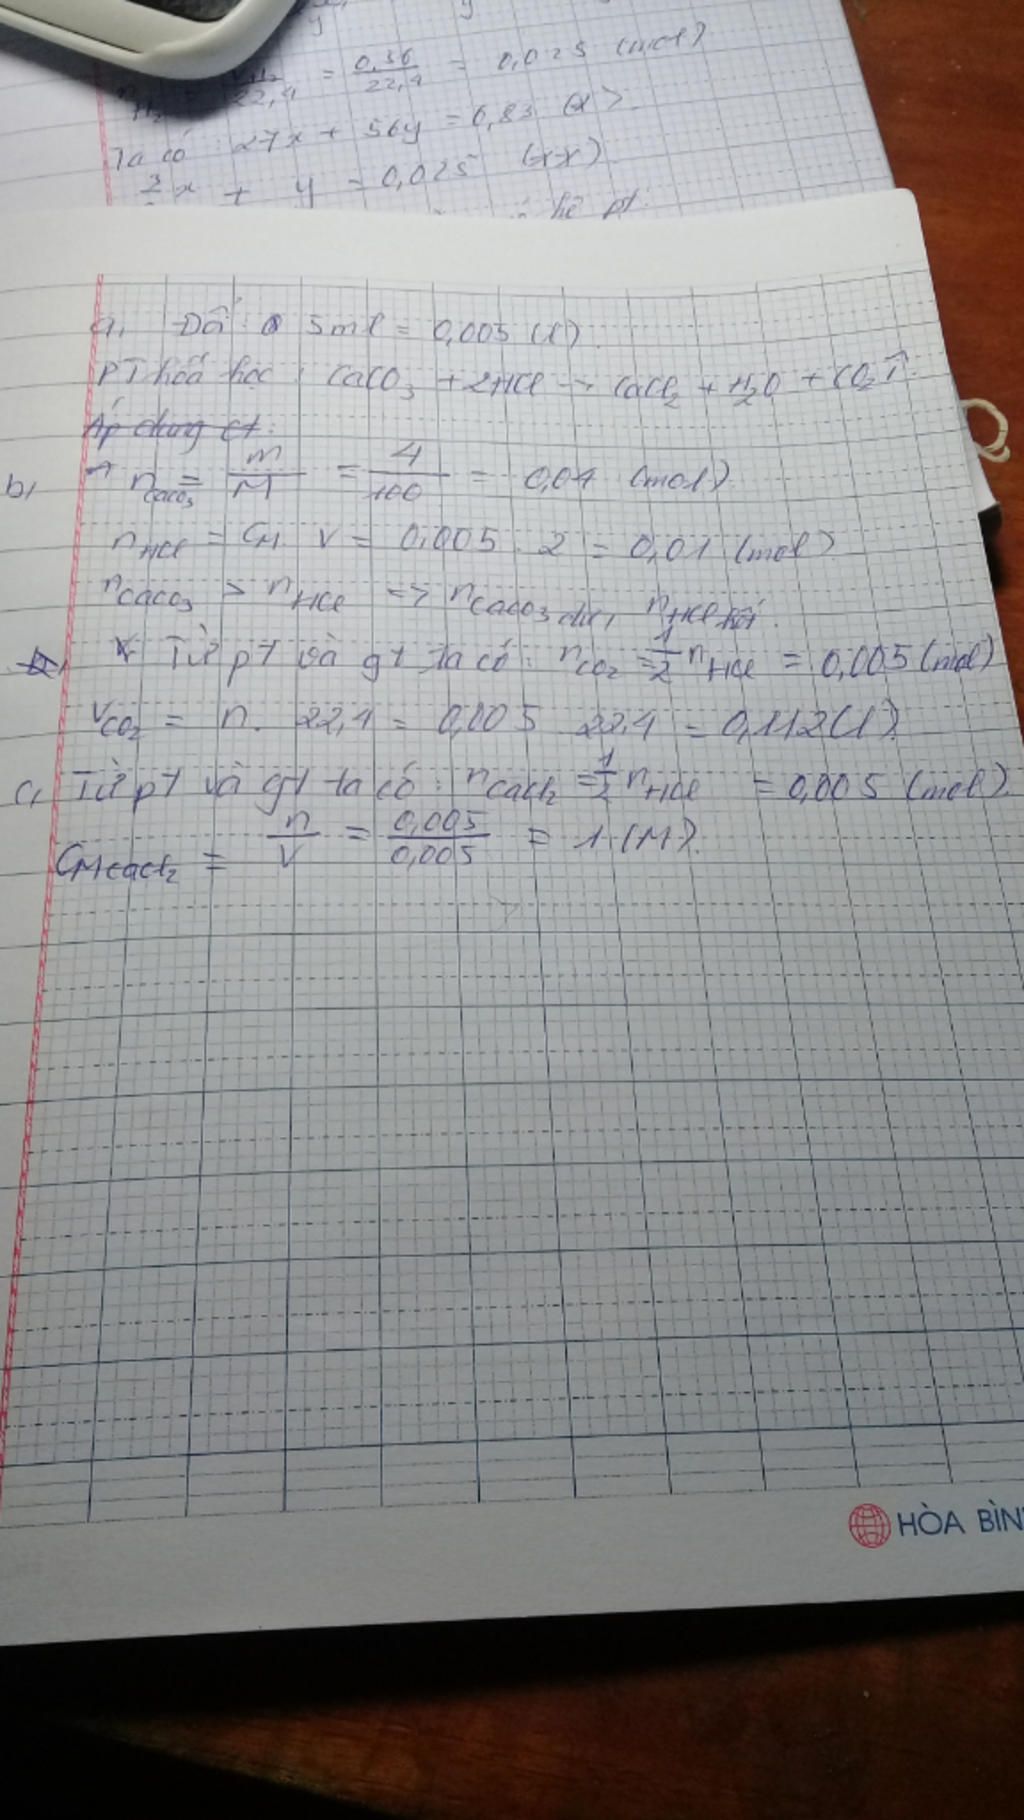 y y
n H₂ = V H₂ / 22,4 = 0,56 / 22,4 = 0,025 (mol)
Ta có: 27x + 56y = 0,83 (*)
3/2 x + y = 0,025 (**)
hệ pt:
a, Đổi: 5ml = 0,005 (l).
PT hoá học: CaCO₃ + 2HCl → CaCl₂ + H₂O + CO₂↑.
Áp dụng ct:
b, n CaCO₃ = m/M = 4/100 = 0,04 (mol)
n HCl = CM. V = 0,005 . 2 = 0,01 (mol)
n CaCO₃ > n HCl => n CaCO₃ dư, n HCl hết.
* Từ pt và gt ta có: n CO₂ = 1/2 n HCl = 0,005 (mol)
V CO₂ = n. 22,4 = 0,005 22,4 = 0,112 (l).
c, Từ pt và gt ta có: n CaCl₂ = 1/2 n HCl = 0,005 (mol).
CM CaCl₂ = n/V = 0,005/0,005 = 1 (M).
HÒA BÌN